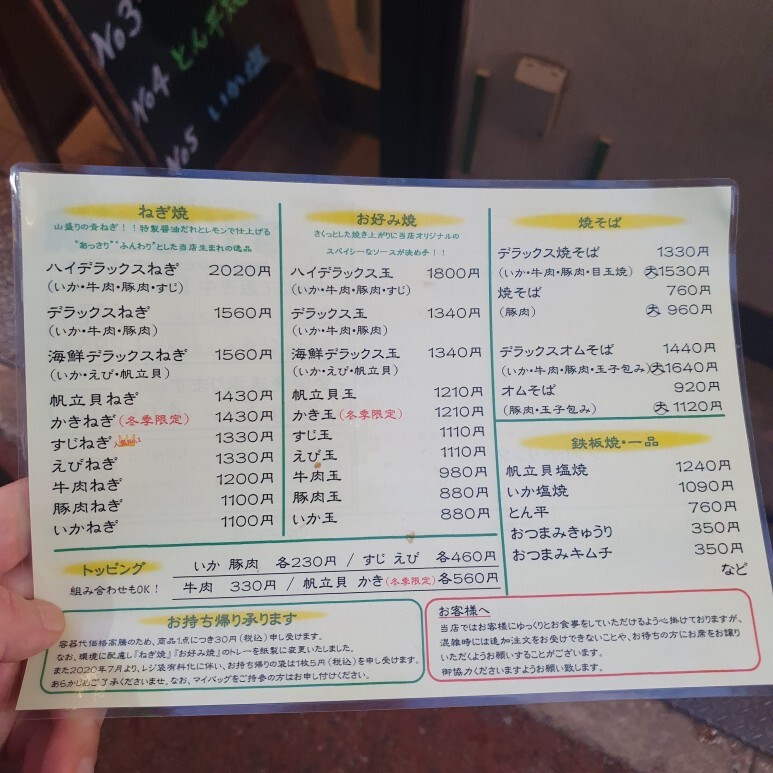 No3
No4 とん平焼
No5 いか塩
ねぎ焼
山盛りの青ねぎ！！特製醤油だれとレモンで仕上げる
"あっさり""ふんわり"とした当店生まれの逸品
ハイデラックスねぎ 2020円
(いか・牛肉・豚肉・すじ)
デラックスねぎ 1560円
(いか・牛肉・豚肉)
海鮮デラックスねぎ 1560円
(いか・えび・帆立貝)
帆立貝ねぎ 1430円
かきねぎ(冬季限定) 1430円
すじねぎ 1330円
えびねぎ 1330円
牛肉ねぎ 1200円
豚肉ねぎ 1100円
いかねぎ 1100円
お好み焼
さくっとした焼き上がりに当店オリジナルの
スパイシーなソースが決め手！！
ハイデラックス玉 1800円
(いか・牛肉・豚肉・すじ)
デラックス玉 1340円
(いか・牛肉・豚肉)
海鮮デラックス玉 1340円
(いか・えび・帆立貝)
帆立貝玉 1210円
かき玉(冬季限定) 1210円
すじ玉 1110円
えび玉 1110円
牛肉玉 980円
豚肉玉 880円
いか玉 880円
焼そば
デラックス焼そば 1330円
(いか・牛肉・豚肉・目玉焼) 大1530円
焼そば 760円
(豚肉) 大 960円
デラックスオムそば 1440円
(いか・牛肉・豚肉・玉子包み)大1640円
オムそば 920円
(豚肉・玉子包み) 大 1120円
鉄板焼・一品
帆立貝塩焼 1240円
いか塩焼 1090円
とん平 760円
おつまみきゅうり 350円
おつまみキムチ 350円
など
トッピング
組み合わせもOK！
いか 豚肉 各230円 / すじ えび 各460円
牛肉 330円 / 帆立貝 かき(冬季限定)各560円
お持ち帰り承ります
容器代価格高騰のため、商品1点につき30円(税込)申し受けます。
なお、環境に配慮し『ねぎ焼』『お好み焼』のトレーを紙製に変更いたしました。
また2020年7月より、レジ袋有料化に伴い、お持ち帰りの袋は1枚5円(税込)を申し受けます。
あらかじめご了承くださいませ。なお、マイバッグをご持参の方はお申し付けください。
お客様へ
当店ではお客様にゆっくりとお食事をしていただけるよう心掛けておりますが、
混雑時には追加注文をお受けできないことや、お待ちの方にお席をお譲り
いただくようお願いすることがございます。
御協力くださいますようお願い致します。